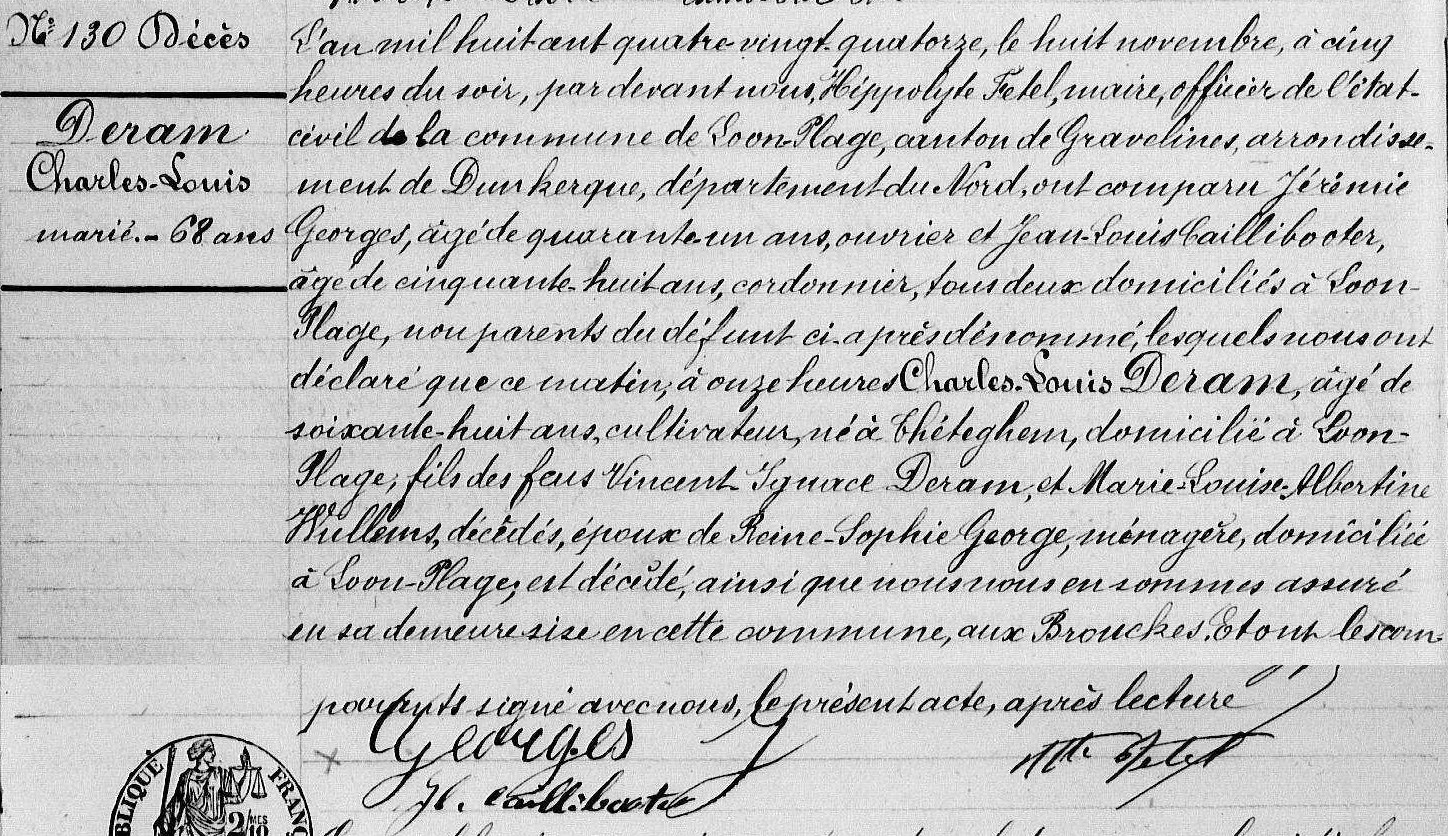 N° 130 Décès
Deram
Charles-Louis
marié. - 68 ans
L'an mil huit cent quatre-vingt-quatorze, le huit novembre, à cinq
heures du soir, par devant nous, Hippolyte Fetel, maire, officier de l'état-
civil de la commune de Loon-Plage, canton de Gravelines, arrondisse-
ment de Dunkerque, département du Nord, ont comparu Jérémie
Georges, âgé de quarante-un ans, ouvrier et Jean-Louis Caillibooter,
âgé de cinquante-huit ans, cordonnier, tous deux domiciliés à Loon-
Plage, non parents du défunt ci-après dénommé, lesquels nous ont
déclaré que ce matin, à onze heures Charles-Louis Deram, âgé de
soixante-huit ans, cultivateur, né à Théteghem, domicilié à Loon-
Plage, fils des feus Vincent Ignace Deram, et Marie-Louise-Albertine
Wullems, décédés, époux de Reine-Sophie George, ménagère, domiciliée
à Loon-Plage; est décédé, ainsi que nous nous en sommes assuré
en sa demeure sise en cette commune, aux Brouckes. Et ont les com-
parants signé avec nous, le présent acte, après lecture
Georges
Jl. Caillibooter
Hte Fetel
BLIQUE FRANÇ
2/10
MES